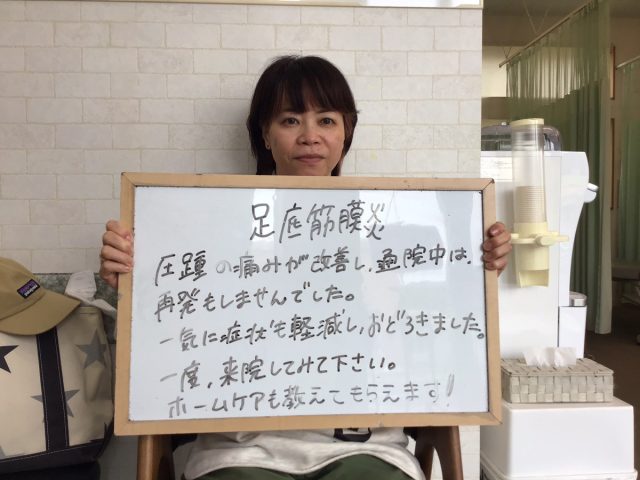 足底筋膜炎
圧踵の痛みが改善し、通院中は、
再発もしませんでした。
一気に症状も軽減し、おどろきました。
一度、来院してみて下さい。
ホームケアも教えてもらえます!